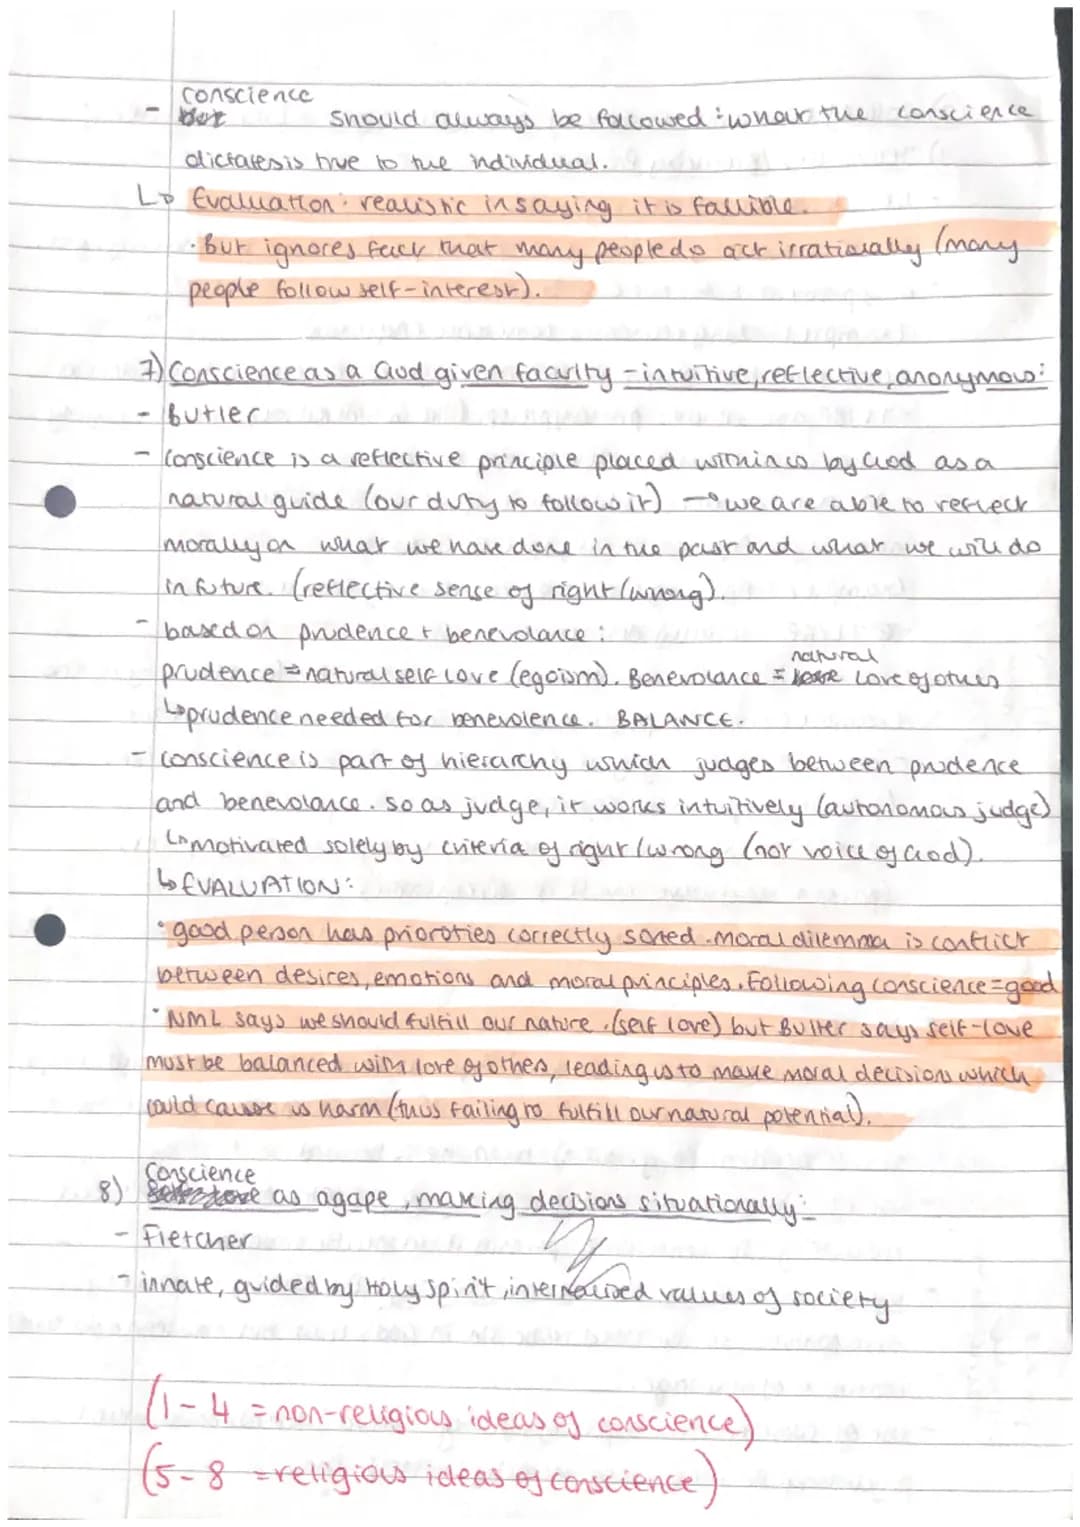 conscience
- should always be followed : what the conscience
dictates is true to the individual.
↳ Evaluation : realistic in saying it is fallible.
· But ignores fact that many people do act irrationally (many
people follow self-interest).
7) Conscience as a God given faculty - intuitive, reflective, anonymous:
- Butler
- conscience is a reflective principle placed within us by God as a
natural guide (our duty to follow it) → we are able to reflect
morally on what we have done in the past and what we will do
in future. (reflective sense of right/wrong).
- based on prudence + benevolance :
natural
prudence = natural self love (egoism). Benevolance = love of others
↳ prudence needed for benevolence. BALANCE.
- conscience is part of hierarchy which judges between prudence
and benevolance. so as judge, it works intuitively (autonomous judge)
↳ motivated solely by criteria of right/wrong (not voice of God).
↳ EVALUATION:
· good person has prioroties correctly sorted. Moral dilemma is conflict
between desires, emotions and moral principles. Following conscience = good
· NML says we should fulfill our nature. (self love) but Butler says self-love
must be balanced with love of others, leading us to make moral decisions which
could cause us harm (thus failing to fulfill our natural potential).
Conscience
8) as agape, making decisions situationally:
- Fletcher
- innate, guided by Holy Spirit, internalised values of society
(1-4 = non-religious ideas of conscience)
(5-8 = religious ideas of conscience)